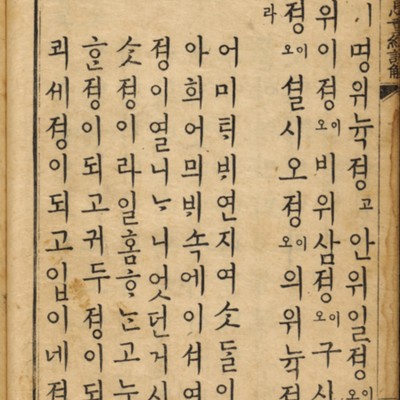 명위뉵졍고안위일졍오이
위이졍오이비위삼졍오이구
졍오이셜시오졍오이의위뉵졍
라
어미ᄐᆡᄇᆡ연지여ᄉᆞᆺᄃᆞᆯ이
아희어믜ᄇᆡ속에이셔여
졍이열니ᄂᆞ니엇던거시
ᄉᆞᆺ졍이라일홈ᄒᆞᄂᆞᆫ고
ᄒᆞᆫ졍이되고귀두졍이되
쾨세졍이되고입이네졍